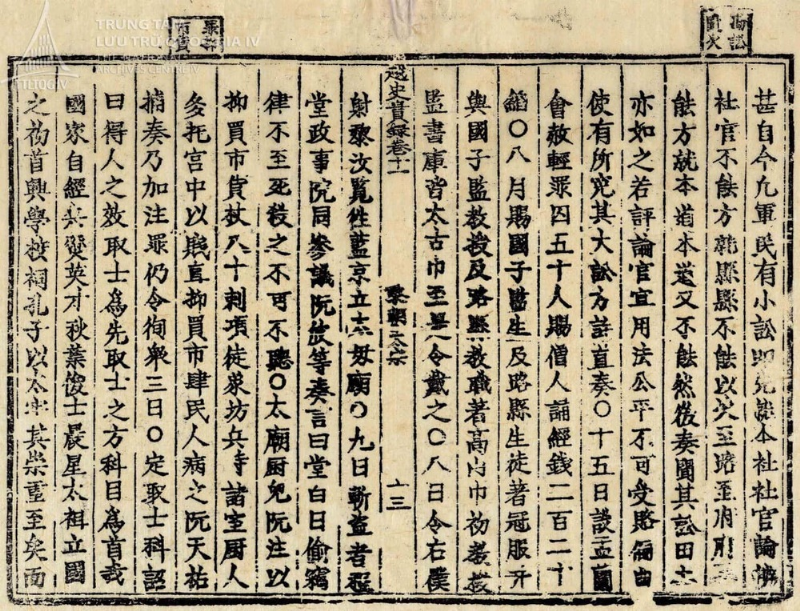 TRUNG TÂM
LƯU TRỮ QUỐC GIA IV
NATIONAL ARCHIVES CENTRE IV
TTLTQG IV
甚自今凡軍民有小訟即先詣本社社官論決
社官不能方就縣縣不能以次至路至府府不
能方就本道本道又不能然後奏聞其訟田土
亦如之若評論官宜用法公平不可受賂偏曲
使有所冤其大訟方許直奏〇十五日設盂蘭
會赦輕罪囚五十人賜僧人誦經錢二百二十
緡〇八月賜國子監生及路縣生徒著冠服
與國子監教授及路縣教職著高山巾初教授
監書庫皆太古巾至是令戴之〇八日令右僕
越史實錄卷十一 黎朝太宗 十三
射黎汝覽徃藍京立太母廟〇九日斬盜者程
堂政事院同參議阮放等奏言曰堂白日偷竊
律不至死殺之不可不聽〇太廟厨兒阮注以
抑買市貨杖八十刺項徒象坊兵時諸室厨人
多托宮中以賤直抑買市肆民人病之阮天祐
捕奏乃加注罪仍令徇衆三日〇定取士科詔
曰得人之效取士為先取士之方科目為首我
國家自經兵燹英才秋葉俊士晨星太祖立國
之初首興學校祠孔子以太牢其崇重至矣而